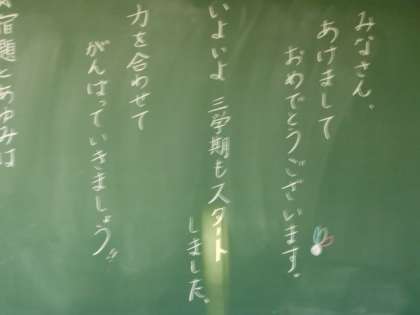 みなさん。
あけまして
おめでとうございます。
いよいよ 三学期もスタート
しました。
力を合わせて
がんばっていきましょう!!
宿題とあゆみは